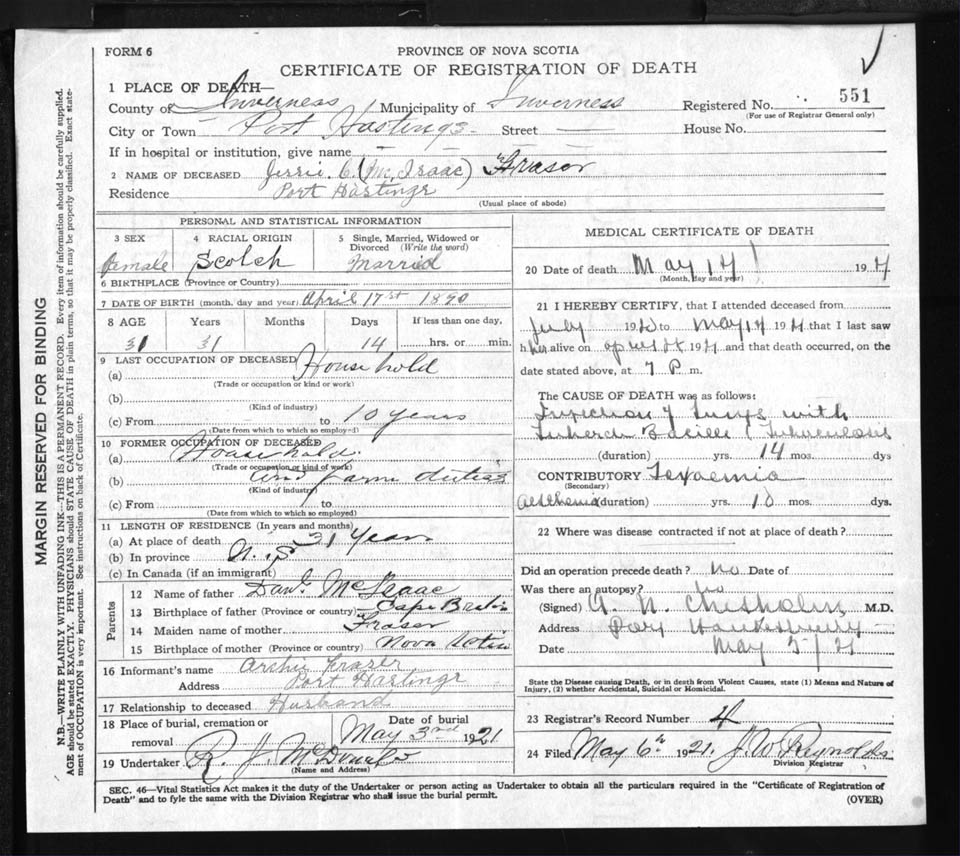 FORM 6
PROVINCE OF NOVA SCOTIA
CERTIFICATE OF REGISTRATION OF DEATH
1 PLACE OF DEATH—
County of Inverness Municipality of Inverness Registered No. 551
(For use of Registrar General only)
City or Town Port Hastings Street — House No.
If in hospital or institution, give name
2 NAME OF DECEASED Jessie C. (McIsaac) Fraser
Residence Port Hastings
(Usual place of abode)
PERSONAL AND STATISTICAL INFORMATION
3 SEX 4 RACIAL ORIGIN 5 Single, Married, Widowed or Divorced (Write the word)
Female Scotch Married
6 BIRTHPLACE (Province or Country)
7 DATE OF BIRTH (month, day and year) April 17st 1890
8 AGE Years Months Days If less than one day,
31 31 14 hrs. or min.
9 LAST OCCUPATION OF DECEASED
(a) Household
(Trade or occupation or kind or work)
(b)
(Kind of industry)
(c) From to 10 years
(Date from which to which so employed)
10 FORMER OCCUPATION OF DECEASED
(a) Household
(Trade or occupation or kind of work)
(b) and farm duties
(Kind of industry)
(c) From to
(Date from which to which so employed)
11 LENGTH OF RESIDENCE (In years and months)
(a) At place of death 31 Years
(b) In province N.S
(c) In Canada (if an immigrant)
Parents
12 Name of father Danl. McIsaac
13 Birthplace of father (Province or country) Cape Breton
14 Maiden name of mother Fraser
15 Birthplace of mother (Province or country) Nova Scotia
16 Informant's name Archie Fraser
Address Port Hastings
17 Relationship to deceased Husband
18 Place of burial, cremation or removal
Date of burial
May 3rd 1921
19 Undertaker R. J. McDonald
(Name and Address)
MEDICAL CERTIFICATE OF DEATH
20 Date of death May 1 19
(Month, day and year)
21 I HEREBY CERTIFY, that I attended deceased from
July 19 to May 19 that I last saw
her alive on 19 and that death occurred, on the
date stated above, at 7 P m.
The CAUSE OF DEATH was as follows:
Infection of lungs with
Bacilli (Tuberculosis
(duration) yrs. 14 mos. dys
CONTRIBUTORY Toxaemia
(Secondary)
(duration) yrs. 10 mos. dys.
22 Where was disease contracted if not at place of death?
Did an operation precede death? no Date of
Was there an autopsy? no
(Signed) A. N. Chisholm M.D.
Address Port Hawkesbury
Date May 5/21
State the Disease causing Death, or in death from Violent Causes, state (1) Means and Nature of
Injury, (2) whether Accidental, Suicidal or Homicidal.
23 Registrar's Record Number 4
24 Filed May 6th 1921. J. W. Reynolds
Division Registrar
SEC. 46—Vital Statistics Act makes it the duty of the Undertaker or person acting as Undertaker to obtain all the particulars required in the "Certificate of Registration of
Death" and to fyle the same with the Division Registrar who shall issue the burial permit.
(OVER)
MARGIN RESERVED FOR BINDING
N.B.—WRITE PLAINLY WITH UNFADING INK—THIS IS A PERMANENT RECORD. Every item of information should be carefully supplied.
AGE should be stated EXACTLY. PHYSICIANS should STATE CAUSE OF DEATH in plain terms, so that it may be properly classified. Exact state-
ment of OCCUPATION is very important. See instructions on back of Certificate.